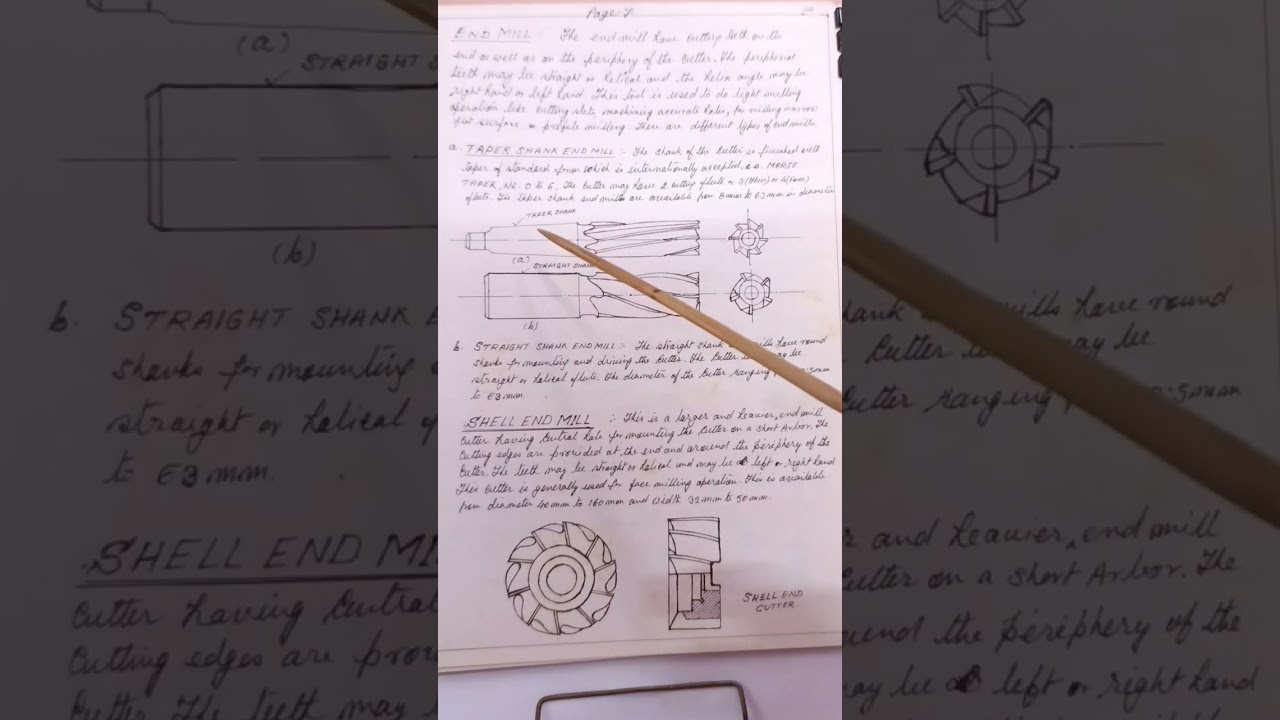 Page-7
29
END MILL The end mill have cutting teeth on the
end as well as on the periphery of the cutter. The peripherial
teeth may be straight or helical and the helix angle may be
right hand or left hand. This tool is used to do light milling
operation like cutting slots, machining accurate holes, for milling narrow
flat surface or profile milling. There are different types of end mills.
a. TAPER SHANK END MILL :- The shank of the cutter is finished with
taper of standard from which is internationally accepted. i.e. MORSE
TAPER. No. 0 to 6. The cutter may have 2 cutting flute or 3 (three) or 4 (four)
flute. The taper shank end mills are available from 8mm to 63mm in diameter
TAPER SHANK
(a)
STRAIGHT SHANK
(b)
b. STRAIGHT SHANK END MILL :- The straight shank mills have round
shanks for mounting and driving the cutter. The cutter may be
straight or helical flute. The diameter of the cutter ranging 5mm
to 63mm.
SHELL END MILL :- This is a larger and heavier, end mill
cutter having central hole for mounting the cutter on a short Arbor. The
cutting edges are provided at the end and around the periphery of the
cutter. The teeth may be straight or helical and may be left or right hand
This cutter is generally used for face milling operation. This is available
from diameter 40mm to 160mm and width 32mm to 50mm.
SHELL END
CUTTER.